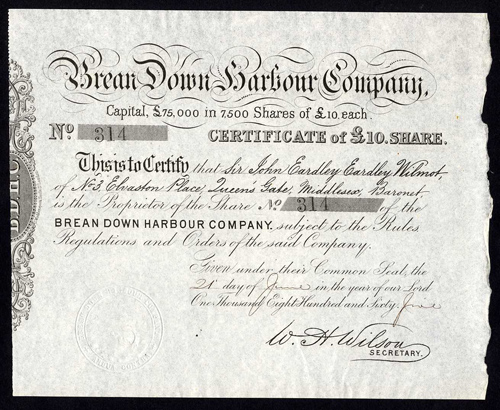 Brean Down Harbour Company,
Capital, £75,000 in 7,500 Shares of £10. each.
No 314 CERTIFICATE of £10. SHARE.
This is to Certify that Sir John Eardley Eardley Wilmot,
of No 3 Elvaston Place, Queens Gate, Middlesex, Baronet
is the Proprietor of the Share No. 314 of the
BREAN DOWN HARBOUR COMPANY, subject to the Rules
Regulations and Orders of the said Company.
Given under their Common Seal, the
21st day of June in the year of our Lord
One Thousand Eight Hundred and Sixty five
W. H. Wilson
SECRETARY.